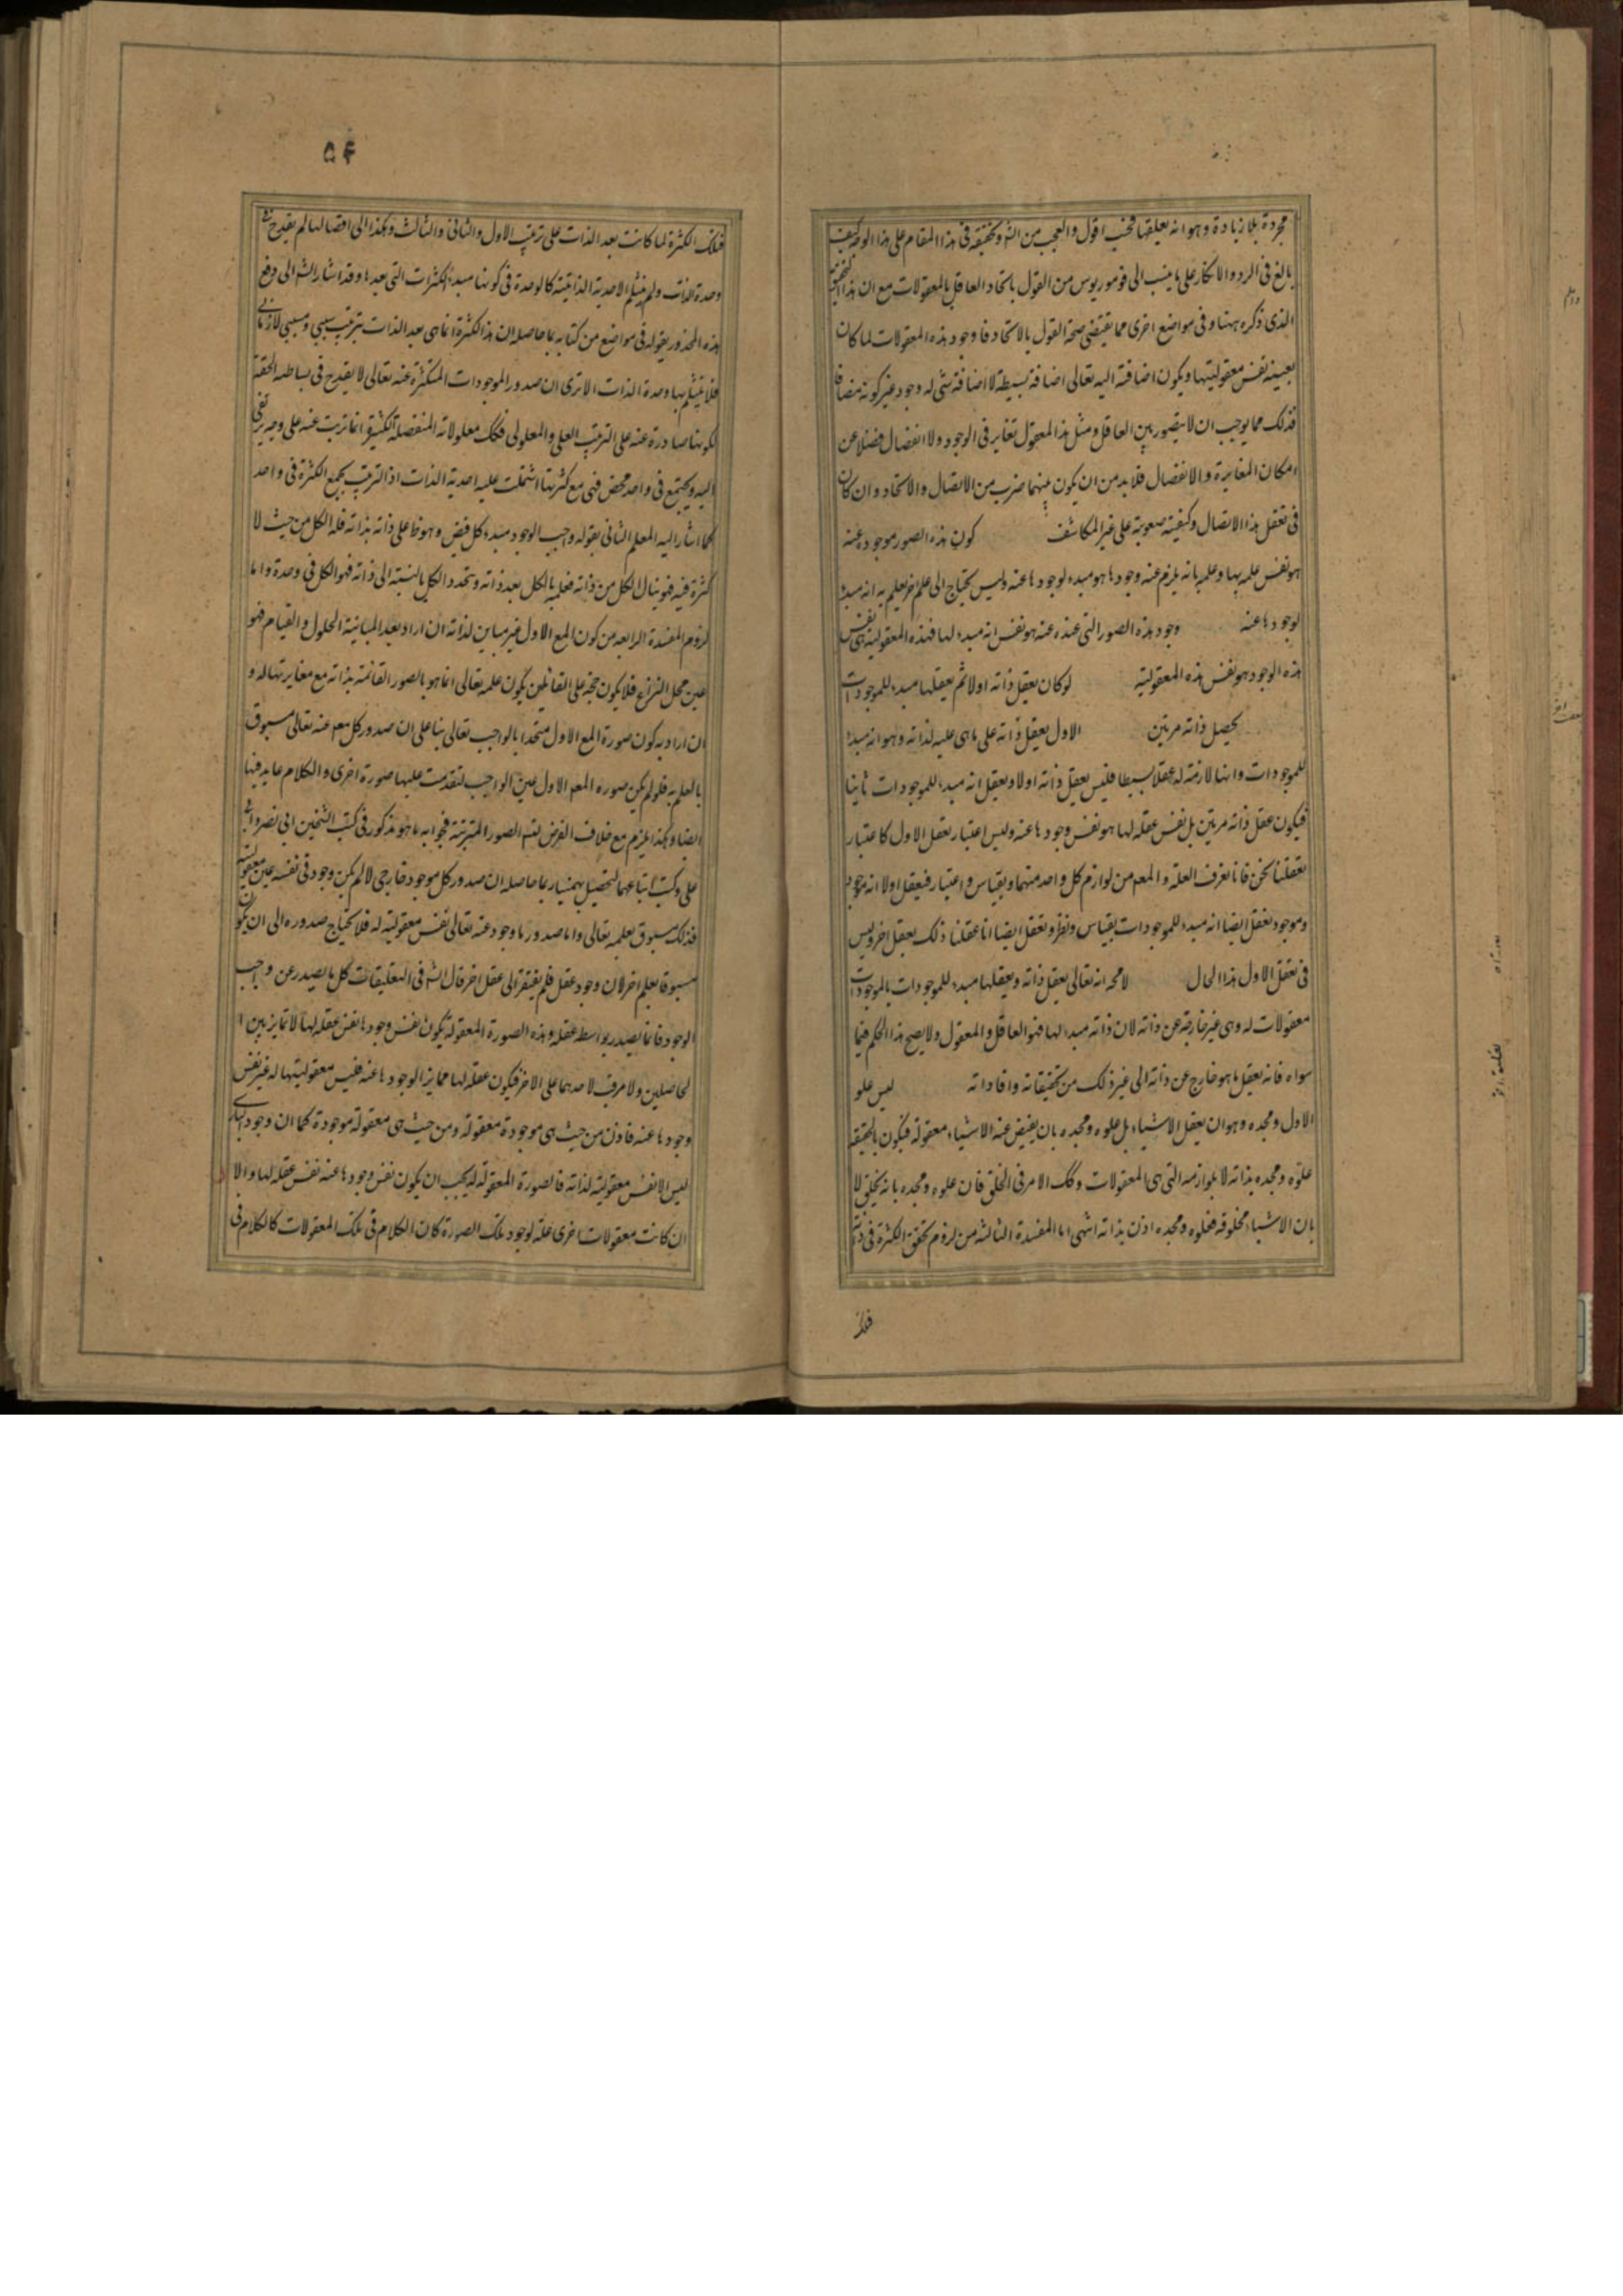 مجردة بلا زيادة وهو انه يعلقها فحسب اقول والعجب من الشيخ وتحقيقه فى هذا المقام على هذا الوجه كيف
بالغ فى الرد والانكار على ما ينسب الى فرفوريوس من القول باتحاد العاقل بالمعقولات مع ان هذا التحقيق
الذى ذكره ههنا وفى مواضع اخرى مما يقتضى صحة القول بالاتحاد فا وجود هذه المعقولات لما كان
بعينه نفس معقوليتها ويكون اضافته اليه تعالى اضافة بسيطة لا اضافة شى له وجود غير كونه مضافا
فذلك مما يوجب ان لا يتصور بين العاقل ومثل هذا المعقول تغاير فى الوجود ولا انفصال فضلا عن
امكان المغايرة والانفصال فلا بد من ان يكون بينهما ضرب من الاتصال والاتحاد وان كان
فى تعقل هذا الاتصال وكيفيته صعوبة على غير المكاشف كون هذه الصور موجوده عنه
هو نفس علمه بها وعلمه بانه يلزم عنه وجودها هو مبدء لوجودها عنه وليس يحتاج الى علم اخر يعلم به انه مبدء
لوجودها عنه وجود هذه الصور التى عنده عنه هو نفس انه مبدء لها فهذه المعقولية هى نفس
هذه الوجود هو نفس هذه المعقولية لو كان يعقل ذاته اولا ثم يعقلها مبدء للموجودات
يحصل ذاته مرتين الاول يعقل ذاته على ما هى عليه لذاته وهو انه مبدء
للموجودات وانها لازمة له عقلا بسيطا فليس يعقل ذاته اولا ويعقل انه مبدء للموجودات ثانيا
فيكون عقل ذاته مرتين بل نفس عقله لها هو نفس وجودها عنه وليس اعتبار تعقل الاول كاعتبار
تعقلنا نحن فانا نعرف العلة والمعم من لوازم كل واحد منهما وبقياس واعتبار فيعقل اولا انه موجود
وموجود نعقل ايضا انه مبدء للموجودات بقياس ونظر ونعقل ايضا انا عقلنا ذلك بعقل اخر وليس
فى تعقل الاول هذا الحال لا محه انه تعالى يعقل ذاته ويعقلها مبدء للموجودات بالموجودات
معقولات له وهى غير خارجة عن ذاته لان ذاته مبدء لها فهو العاقل والمعقول ولا يصح هذا الحكم فيما
سواه فانه يعقل ما هو خارج عن ذاته الى غير ذلك من تحقيقاته وافاداته ليس علو
الاول ومجده وهو ان يعقل الاشياء بل علوه ومجده بان يفيض عنه الاشياء معقولة فيكون بالحقيقة
علوه ومجده بذاته لا بلوازمه التى هى المعقولات وكك الامر فى الخلق فان علوه ومجده بانه يخلق لا
بان الاشياء مخلوقه فعلوه ومجده اذن بذاته انتهى اما المفسدة الثالثه من لزوم تحقق الكثرة فى ذاته
فتلك
۵۴
فتلك الكثرة لما كانت بعد الذات على ترتيب الاول والثانى والثالث وهكذا الى اقصالها لم يقدح فى
وحدة الذات ولم ينثلم الاحدية الذاتية كالوحدة فى كونها مبدء الكثرات التى بعدها وقد اشار الشيخ الى دفع
هذه المحذور بقوله فى مواضع من كتابه بما حاصله ان هذا الكثرة انما هى بعد الذات بترتيب سببى ومسببى لا زمانى
فلا ينثلم بها وحدة الذات الا ترى ان صدور الموجودات المتكثرة عنه تعالى لا يقدح فى بساطته الحقة
لكونها صادرة عنه على الترتيب العلى والمعلولى فكك معلولاته المنفصلة الكثيرة انما ترتب عنه على وجه يرتقى
اليه ويجتمع فى واحد محض فهى مع كثرتها اشتملت عليه احدية الذات اذ الترتيب يجمع الكثرة فى واحد
كما اشار اليه المعلم الثانى بقوله واجب الوجود مبدء كل فيض وهو ظ على ذاته بذاته فله الكل من حيث لا
كثرة فيه فهو ينال الكل من ذاته فعلمه بالكل بعد ذاته ويتحد الكل بالنسبته الى ذاته فهو الكل فى وحدة واما
لزوم المفسدة الرابعه من كون المع الاول غير مباين لذاته ان اراد بعد المباينة الحلول والقيام فهو
عين محل النزاع فلا يكون حجة على القائلين بكون علمه تعالى انما هو بالصور القائمة بذاته مع مغايرتها له و
ان اراد به كون صورة المع الاول متحدا بالواجب تعالى بنا على ان صدور كل معم عنه تعالى مسبوق
بالعلم به فلو لم يكن صوره المعم الاول عين الواجب لتقدمت عليها صورة اخرى والكلام عايد فيها
ايضا وهكذا يلزم مع خلاف الفرض لتسم الصور المترتبة فجوابه ما هو مذكور فى كتب الشيخين ابى نصر وابى
على وكتب اتباعهما كالتحصيل بهمنيار بما حاصله ان صدور كل موجود خارجى لا لم يكن وجود فى نفسه عين معقوليته
فذلك مسبوق بعلمه تعالى واما صدور ما وجود عنه تعالى نفس معقوليته له فلا يحتاج صدوره الى ان يكون
مسبوقا بعلم اخر لان وجود عقل فلم يفتقر الى عقل اخر قال الشيخ فى التعليقات كل ما يصدر عن واجب
الوجود فانما يصدر بواسطه عقله وهذه الصورة المعقولة يكون نفس وجودها نفس عقله لها لا تمايز بين ا
لحاصلين ولا ترتب لاحدهما على الاخر فيكون عقله لها ممايز الوجودها عنه فليس معقوليتها له غير نفس
وجودها عنه فاذن من حيث هى موجودة معقوله ومن حيث هى معقولة موجودة كما ان وجود البارى
ليس الا نفس معقوليته لذاته فالصورة المعقولة له يجب ان يكون نفس وجودها عنه نفس عقله لها والا
ان كانت معقولات اخرى علة لوجود تلك الصورة كان الكلام فى تلك المعقولات كالكلام فى